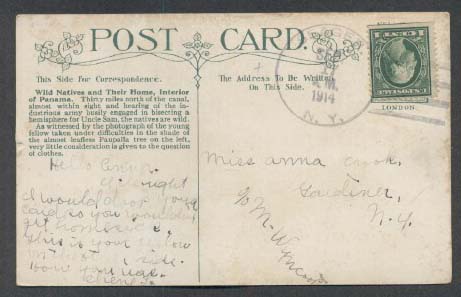 POST CARD.
This Side For Correspondence.
The Address To Be Written
On This Side.
Wild Natives and Their Home, Interior
of Panama. Thirty miles north of the canal,
almost within sight and hearing of the in-
dustrious army busily engaged in bisecting a
hemisphere for Uncle Sam, the natives are wild.
As witnessed by the photograph of the young
fellow taken under difficulties in the shade of
the almost leafless Paupalla tree on the left,
very little consideration is given to the question
of clothes.
1914
N. Y.
LONDON.
Hello
I thought
I would drop you
card so you wouldn't
get homesick.
this is your
Miss Anna Cook,
Gardiner,
N.Y.
c/o M. W.